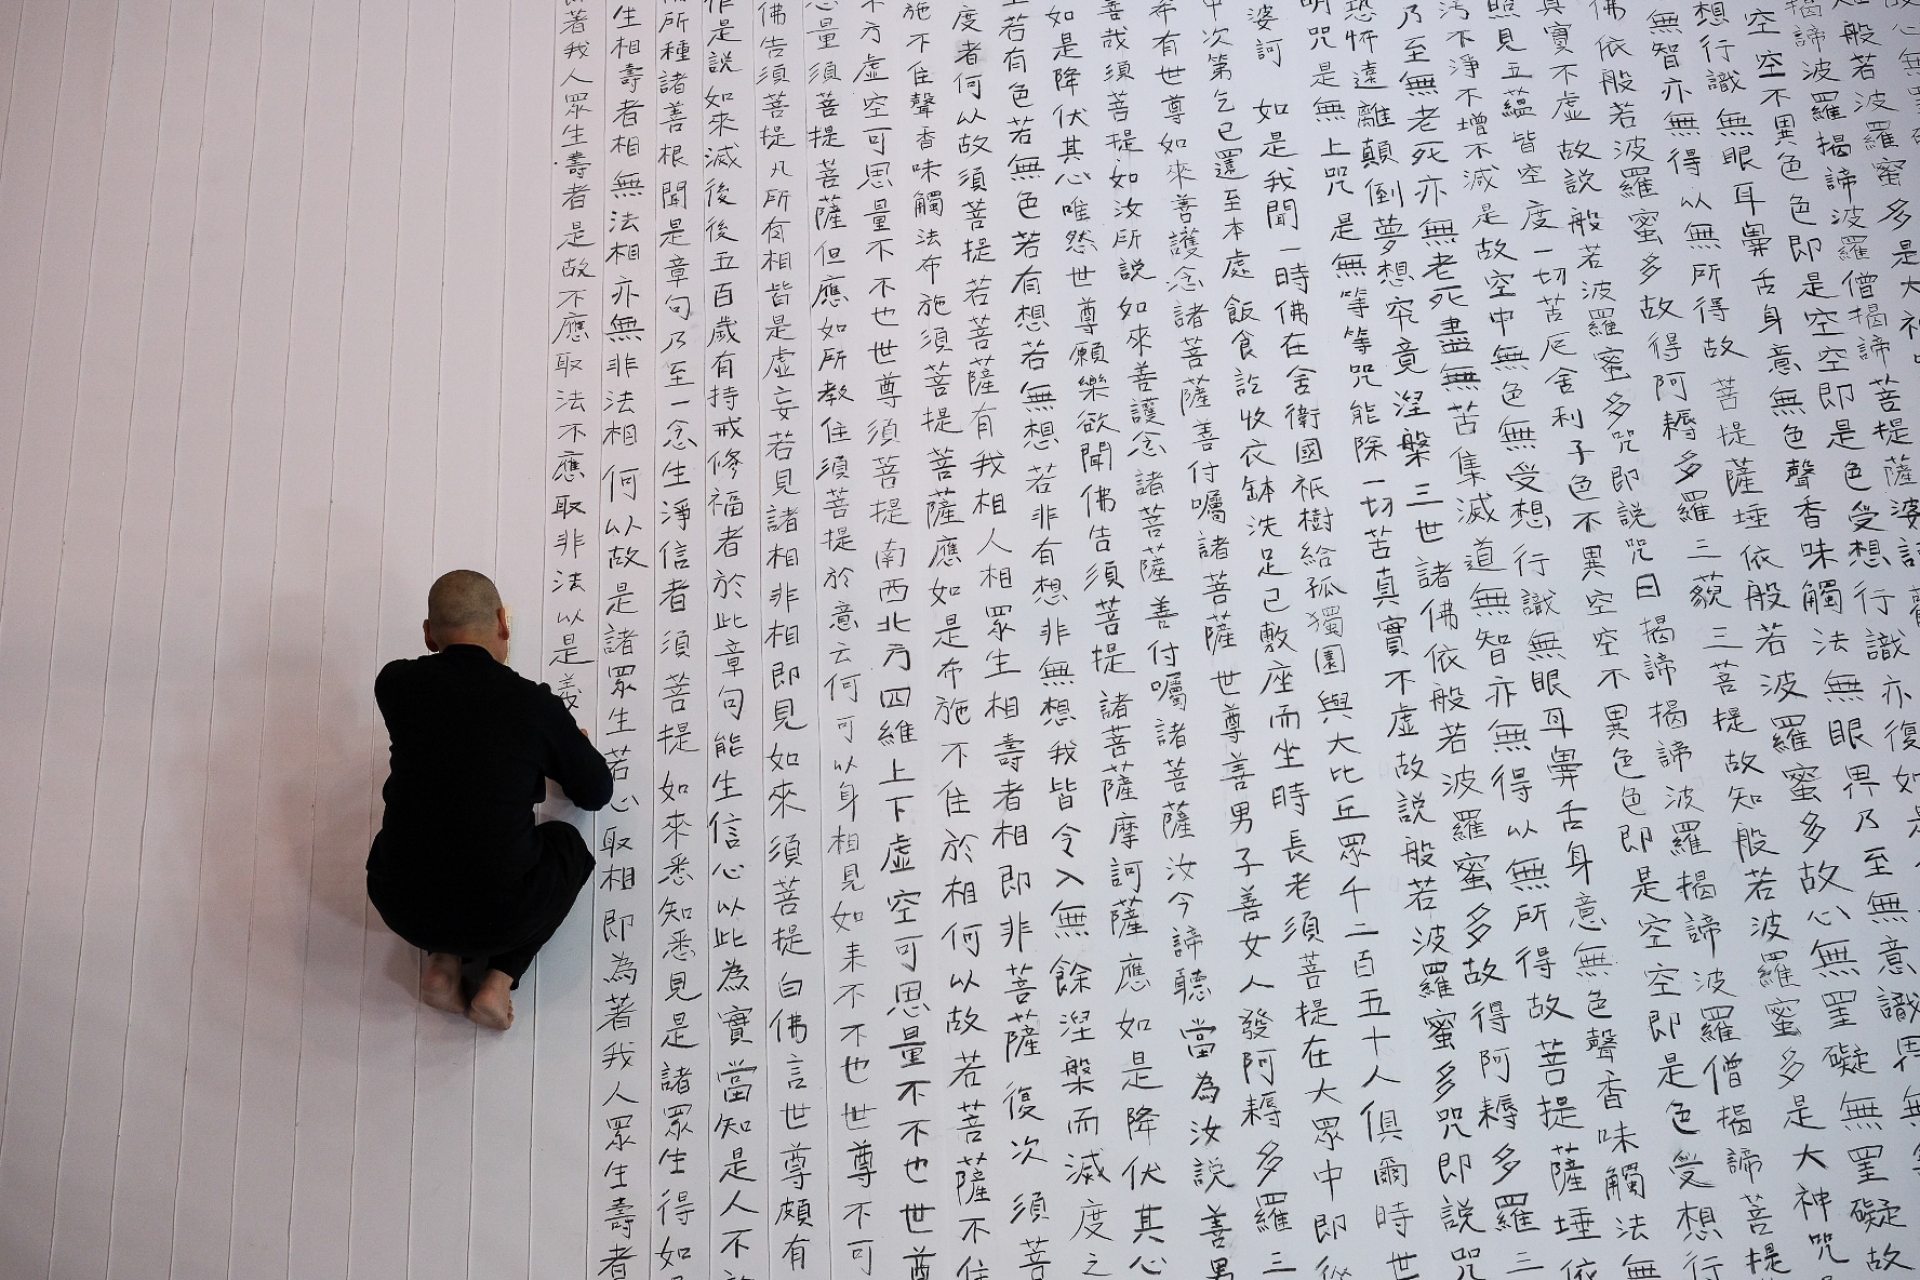 心無罣
般若波羅蜜多是大神咒
揭諦波羅揭諦波羅僧揭諦菩提薩婆訶
空空不異色色即是空空即是色受想行識亦復如是
想行識無眼耳鼻舌身意無色聲香味觸法無眼界乃至無意識界無
無智亦無得以無所得故 菩提薩埵依般若波羅蜜多故心無罣礙無罣礙故
佛依般若波羅蜜多故得阿耨多羅三藐三菩提故知般若波羅蜜多是大神咒
真實不虛故說般若波羅蜜多咒即說咒曰揭諦揭諦波羅揭諦波羅僧揭諦菩提
照見五蘊皆空度一切苦厄舍利子色不異空空不異色色即是空空即是色受想行
污不淨不增不減是故空中無色無受想行識無眼耳鼻舌身意無色聲香味觸法無
乃至無老死亦無老死盡無苦集滅道無智亦無得以無所得故菩提薩埵依
恐怖遠離顛倒夢想究竟涅槃三世諸佛依般若波羅蜜多故得阿耨多羅三
明咒是無上咒是無等等咒能除一切苦真實不虛故說般若波羅蜜多咒即說咒
婆訶 如是我聞一時佛在舍衛國祇樹給孤獨園與大比丘眾千二百五十人俱爾時世
中次第乞已還至本處飯食訖收衣缽洗足已敷座而坐時長老須菩提在大眾中即從
希有世尊如來善護念諸菩薩善付囑諸菩薩世尊善男子善女人發阿耨多羅三
善哉須菩提如汝所說如來善護念諸菩薩善付囑諸菩薩汝今諦聽當為汝說善男
如是降伏其心唯然世尊願樂欲聞佛告須菩提諸菩薩摩訶薩應如是降伏其心
若有色若無色若有想若無想若非有想非無想我皆令入無餘涅槃而滅度之
度者何以故須菩提若菩薩有我相人相眾生相壽者相即非菩薩復次須菩
施不住聲香味觸法布施須菩提菩薩應如是布施不住於相何以故若菩薩不住
方虛空可思量不不也世尊須菩提南西北方四維上下虛空可思量不不也世尊
思量須菩提菩薩但應如所教住須菩提於意云何可以身相見如來不不也世尊不可
佛告須菩提凡所有相皆是虛妄若見諸相非相即見如來須菩提白佛言世尊頗有
作是說如來滅後後五百歲有持戒修福者於此章句能生信心以此為實當知是人不於
所種諸善根聞是章句乃至一念生淨信者須菩提如來悉知悉見是諸眾生得如
生相壽者相無法相亦無非法相何以故是諸眾生若心取相即為著我人眾生壽者
著我人眾生壽者是故不應取法不應取非法以是義